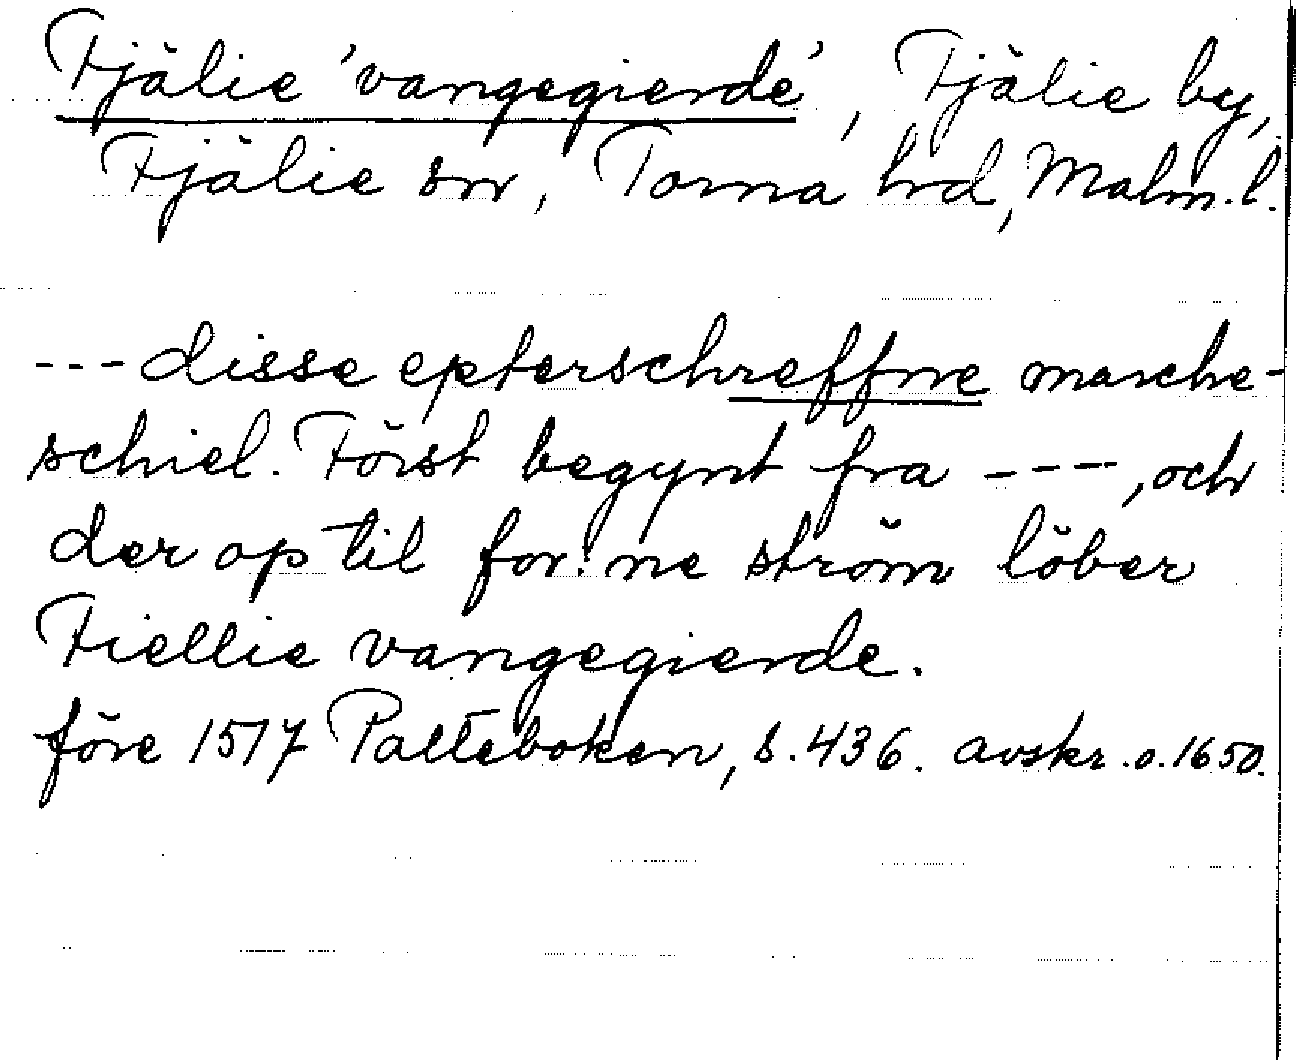 Fjälie 'vangegierde', Fjälie by,
Fjälie sn, Torna hrd, Malm.l.
---disse epterschreffne marche-
schiel. Först begynt fra ---, och
der op til for:ne ström löber
Fiellie vangegierde.
före 1517 Palteboken, s.436. avskr.o.1650.